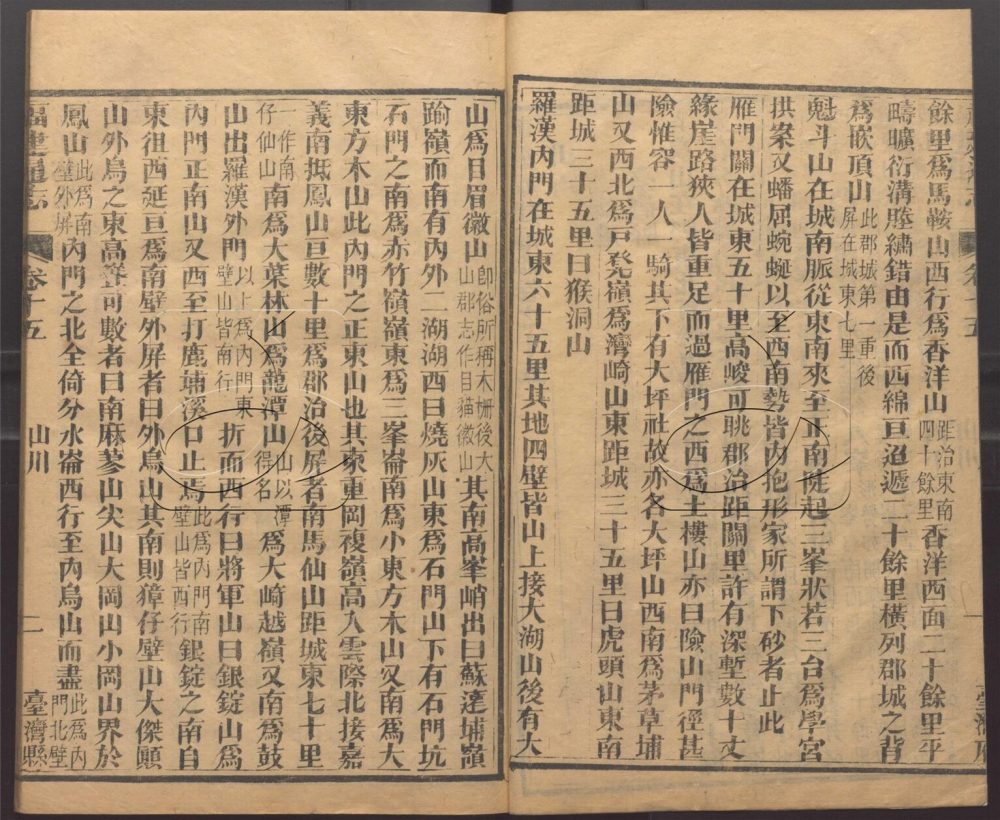 餘里爲馬鞍山西行爲香洋山距治東南四十餘里香洋西面二十餘里平
疇曠衍溝塍繡錯由是而西綿亘迢遞二十餘里橫列郡城之背
爲嵌頂山此郡城第一重後屏在城東七里
魁斗山在城南脈從東南來至正南陡起三峯狀若三台爲學宮
拱案又蟠屈蜿蜒以至西南勢皆內抱形家所謂下砂者止此
雁門關在城東五十里高峻可眺郡治距關里許有深塹數十丈
緣崖路狹人皆重足而過雁門之西爲土樓山亦曰險山門徑甚
險惟容一人一騎其下有大坪社故亦名大坪山西南爲茅草埔
山又西北爲戸凳嶺爲灣崎山東距城三十五里曰虎頭山東南
距城三十五里曰猴洞山
羅漢內門在城東六十五里其地四壁皆山上接大湖山後有大
山爲目眉徽山卽俗所稱木柵後大山郡志作目貓徽山其南高峯峭出曰蘇蓮埔嶺
踰嶺而南有內外二湖湖西曰燒灰山東爲石門山下有石門坑
石門之南爲赤竹嶺嶺東爲三峯崙南爲小東方木山又南爲大
東方木山此內門之正東山也其東重岡複嶺高入雲際北接嘉
義南抵鳳山亘數十里爲郡治後屏者南馬仙山距城東七十里
一作南仔仙山南爲大葉林山爲龍潭山山以潭得名爲大崎越嶺又南爲鼓
山出羅漢外門以上爲內門東壁山皆南行折而西行曰將軍山曰銀錠山爲
內門正南山又西至打鹿埔溪口止焉此爲內門南壁山皆西行銀錠之南自
東徂西延亘爲南壁外屏者曰外烏山其南則獐仔壁山大傑顚
山外烏之東高聳可數者曰南麻蔘山尖山大岡山小岡山界於
鳳山此爲南壁外屏內門之北全倚分水崙西行至內烏山而盡此爲內門北壁
卷十五
山川
二
臺灣縣